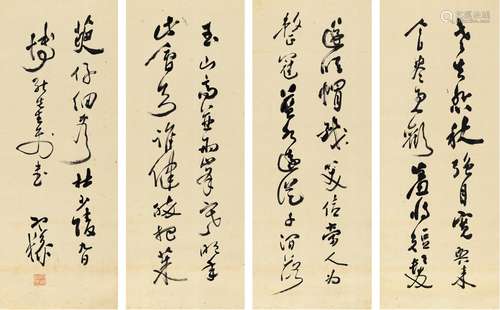 老去悲秋強自寬興來
今日盡君歡羞將短髮
還吹帽笑倩旁人為
整冠藍水遠從千澗落
玉山高並兩峰寒明年
此會知誰健醉把茱
萸仔細看杜少陵九日
先生 書